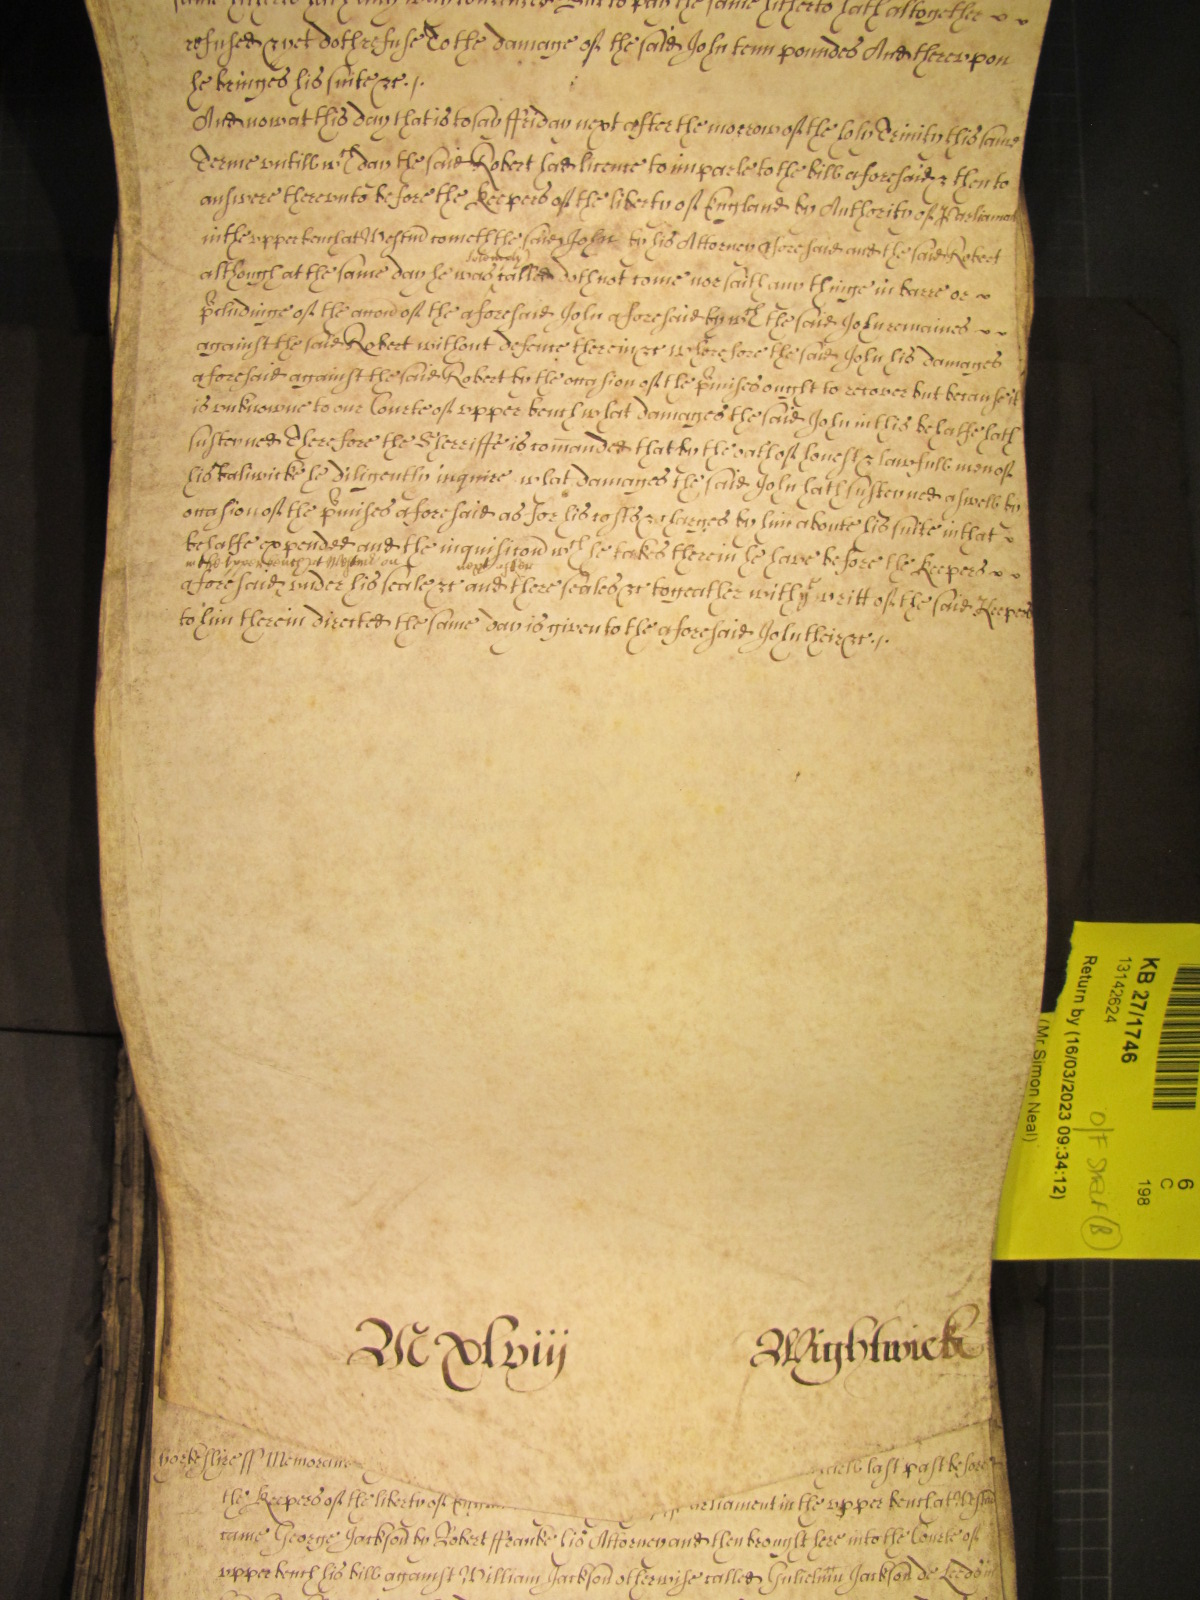 same hitherto hath altogether
refused & yet doth refuse To the damage of the said John tenn poundes And thereupon
he bringes his suite &c.
And now at this day that is to say ffriday next after the morrow of the holy Trinity this same
Terme untill wch day the said Robert had licence to imparle to the bill aforesaid & then to
answere thereunto before the Keepers of the liberty of England by Authority of Parliament
in the upper bench at Westm cometh the said John by his Attorney aforesaid and the said Robert
solemnly
although at the same day he was called doth not come nor saith any thinge in barre or
p'cludinge of the accon of the aforesaid John aforesaid by wch the said John remaines
against the said Robert without defence therein &c wherefore the said John his damages
aforesaid against the said Robert by the occasion of the p'mises ought to recover but because it
is unknowne to our Courte of upper bench what damages the said John in this behalfe hath
susteyned Therefore the Sherriffe is comanded that by the oath of honest & lawfull men of
his baliwicke he diligently inquire what damages the said John hath susteyned aswell by
occasion of the p'mises aforesaid as for his costs & charges by him aboute his suite in that
behalfe expended and the inquisicon wch he takes therein he have before the Keepers
in the upper bench at Westm on next after
aforesaid under his seale &c and there seales &c togeather with ye writt of the said Keepers
to him therein directed the same day is given to the aforesaid John their &c.
M xlviij Wightwick
Yorkeshire ss Memorand last past before
the Keepers of the liberty of Parliament in the upper bench at Westm
came George Jackson by Robert ffranke his Attorney and then brought here into the Courte of
upper bench his bill against William Jackson otherwise called Gulielmu Jackson de Leeds in
KB 27/1746
13142624
Return by (16/03/2023 09:34:12)
(Mr Simon Neal)
6
C
198